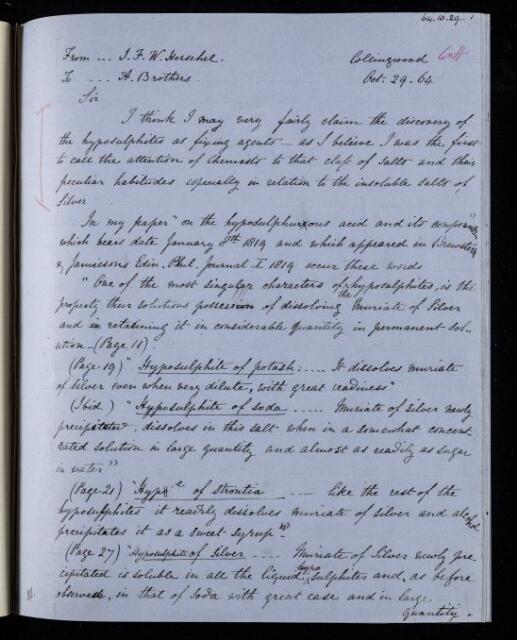 64.10.29. 1
From ... J. F. W. Herschel. Collingwood
To ... A. Brothers. Oct. 29. 64
Sir
I think I may very fairly claim the discovery of
the hyposulphites as fixing agents — as I believe I was the first
to call the attention of chemists to that class of salts and their
peculiar habitudes especially in relation to the insoluble salts of
Silver
In my paper "on the hyposulphurous acid and its compounds"
which bears date January 8th 1819 and which appeared in Brewster's
& Jamieson's Edin. Phil. Journal I 1819 occur these words
"One of the most singular characters of the hyposulphites, is the
property their solutions possess of dissolving Muriate of Silver
and in retaining it in considerable quantity in permanent sol-
ution — (Page 11)
(Page 19) "Hyposulphite of potash .... It dissolves muriate
of silver even when very dilute, with great readiness"
(Ibid) "Hyposulphite of soda ..... Muriate of silver newly
precipitated dissolves in this salt when in a somewhat concent-
rated solution in large quantity and almost as readily as sugar
in water"
(Page 21) "Hypte of Strontia .... like the rest of the
hyposulphites it readily dissolves muriate of silver and alcohol
precipitates it as a sweet syrup"
(Page 27) "Hyposulphite of Silver .... Muriate of Silver newly pre-
cipitated is soluble in all the liquid hyposulphites and, as before
observed, in that of Soda with great ease and in large
quantity.